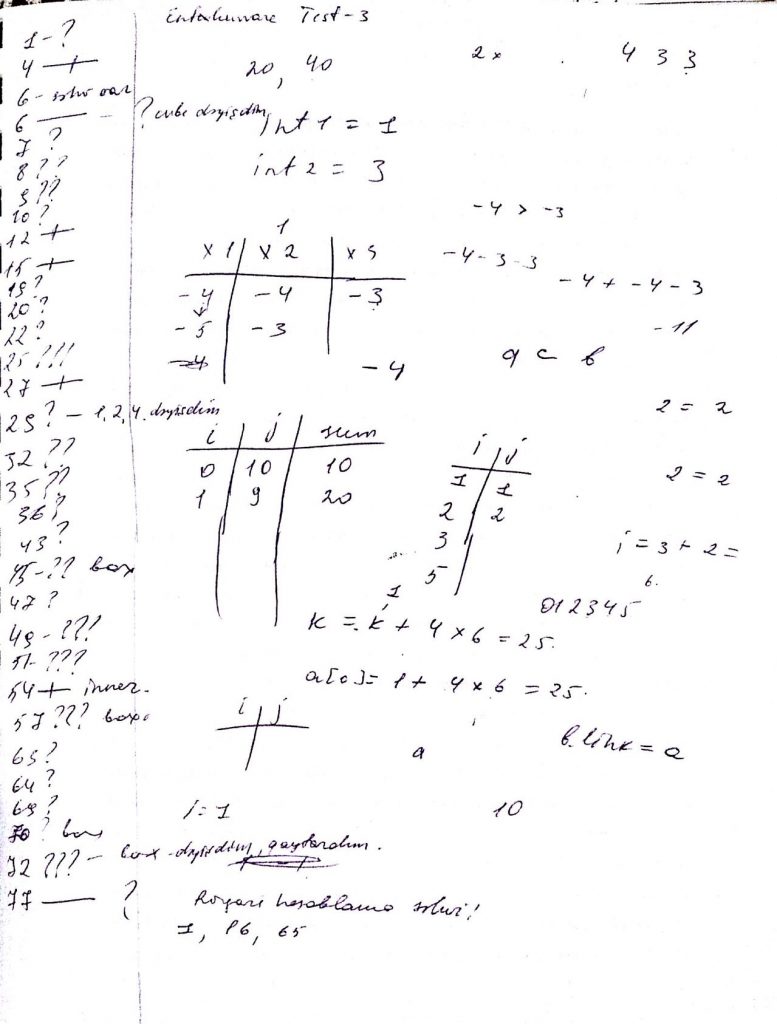 Test-3
1-?
4 +
20, 40
2x
4 3 3
6 -
6 — - ?
int 1 = 1
7 ?
int 2 = 3
8 ??
9 ??
10 ?
-4 > -3
12 +
x1 | x2 | x3
-4 -3 -3
15 +
-4 + -4 -3
19 ?
-4 | -4 | -3
20 ?
-5 | -3
-11
22 ?
25 !!!
-4
a c b
27 +
2 = 2
29 ? - 1, 2, 4. dəyişdim
i | j | sum
32 ??
0 | 10 | 10
i | j
2 = 2
35 ??
1 | 9 | 20
1 | 1
36 ?
2 | 2
43 ?
3
i = 3 + 2 =
45 - ?? box
5
6.
47 ?
1
012345
49 - ???
k = k + 4 x 6 = 25.
51 - ???
a[0] = 1 + 4 x 6 = 25.
54 + inner.
57 ??? box.
i | j
b.link = a
63 ?
a
64 ?
69 ?
i = 1
10
70 ? box
72 ??? - box dəyişdim, qaytardım.
77 — ?
hesablama səhvi!
1, 86, 65